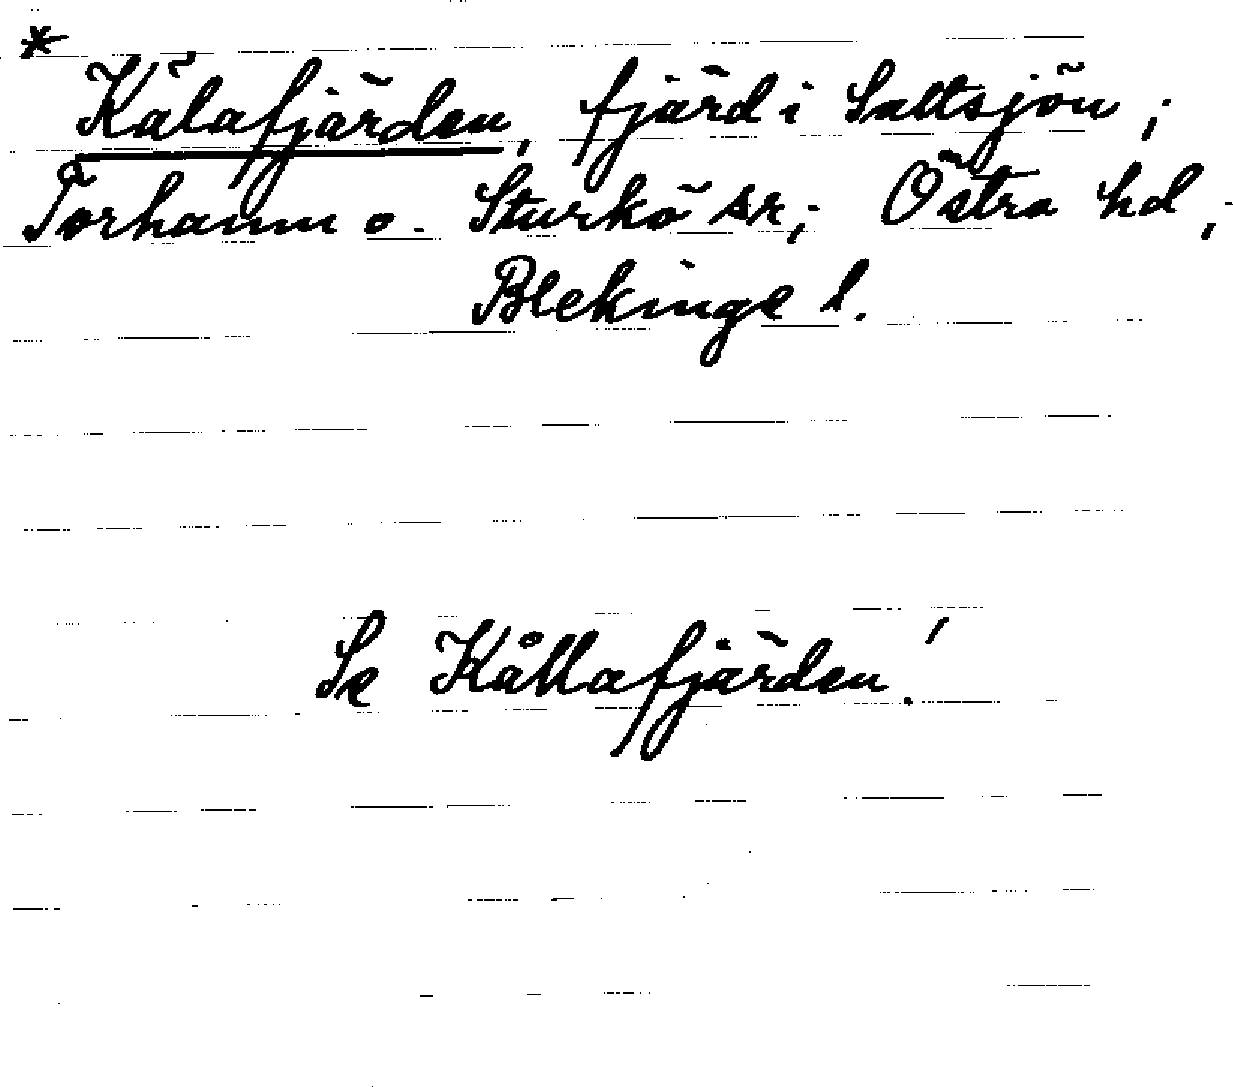 *
Kälafjärden, fjärd i Saltsjön;
Torhamn o. Sturkö sr; Östra hd,
Blekinge l.
Se Kållafjärden!